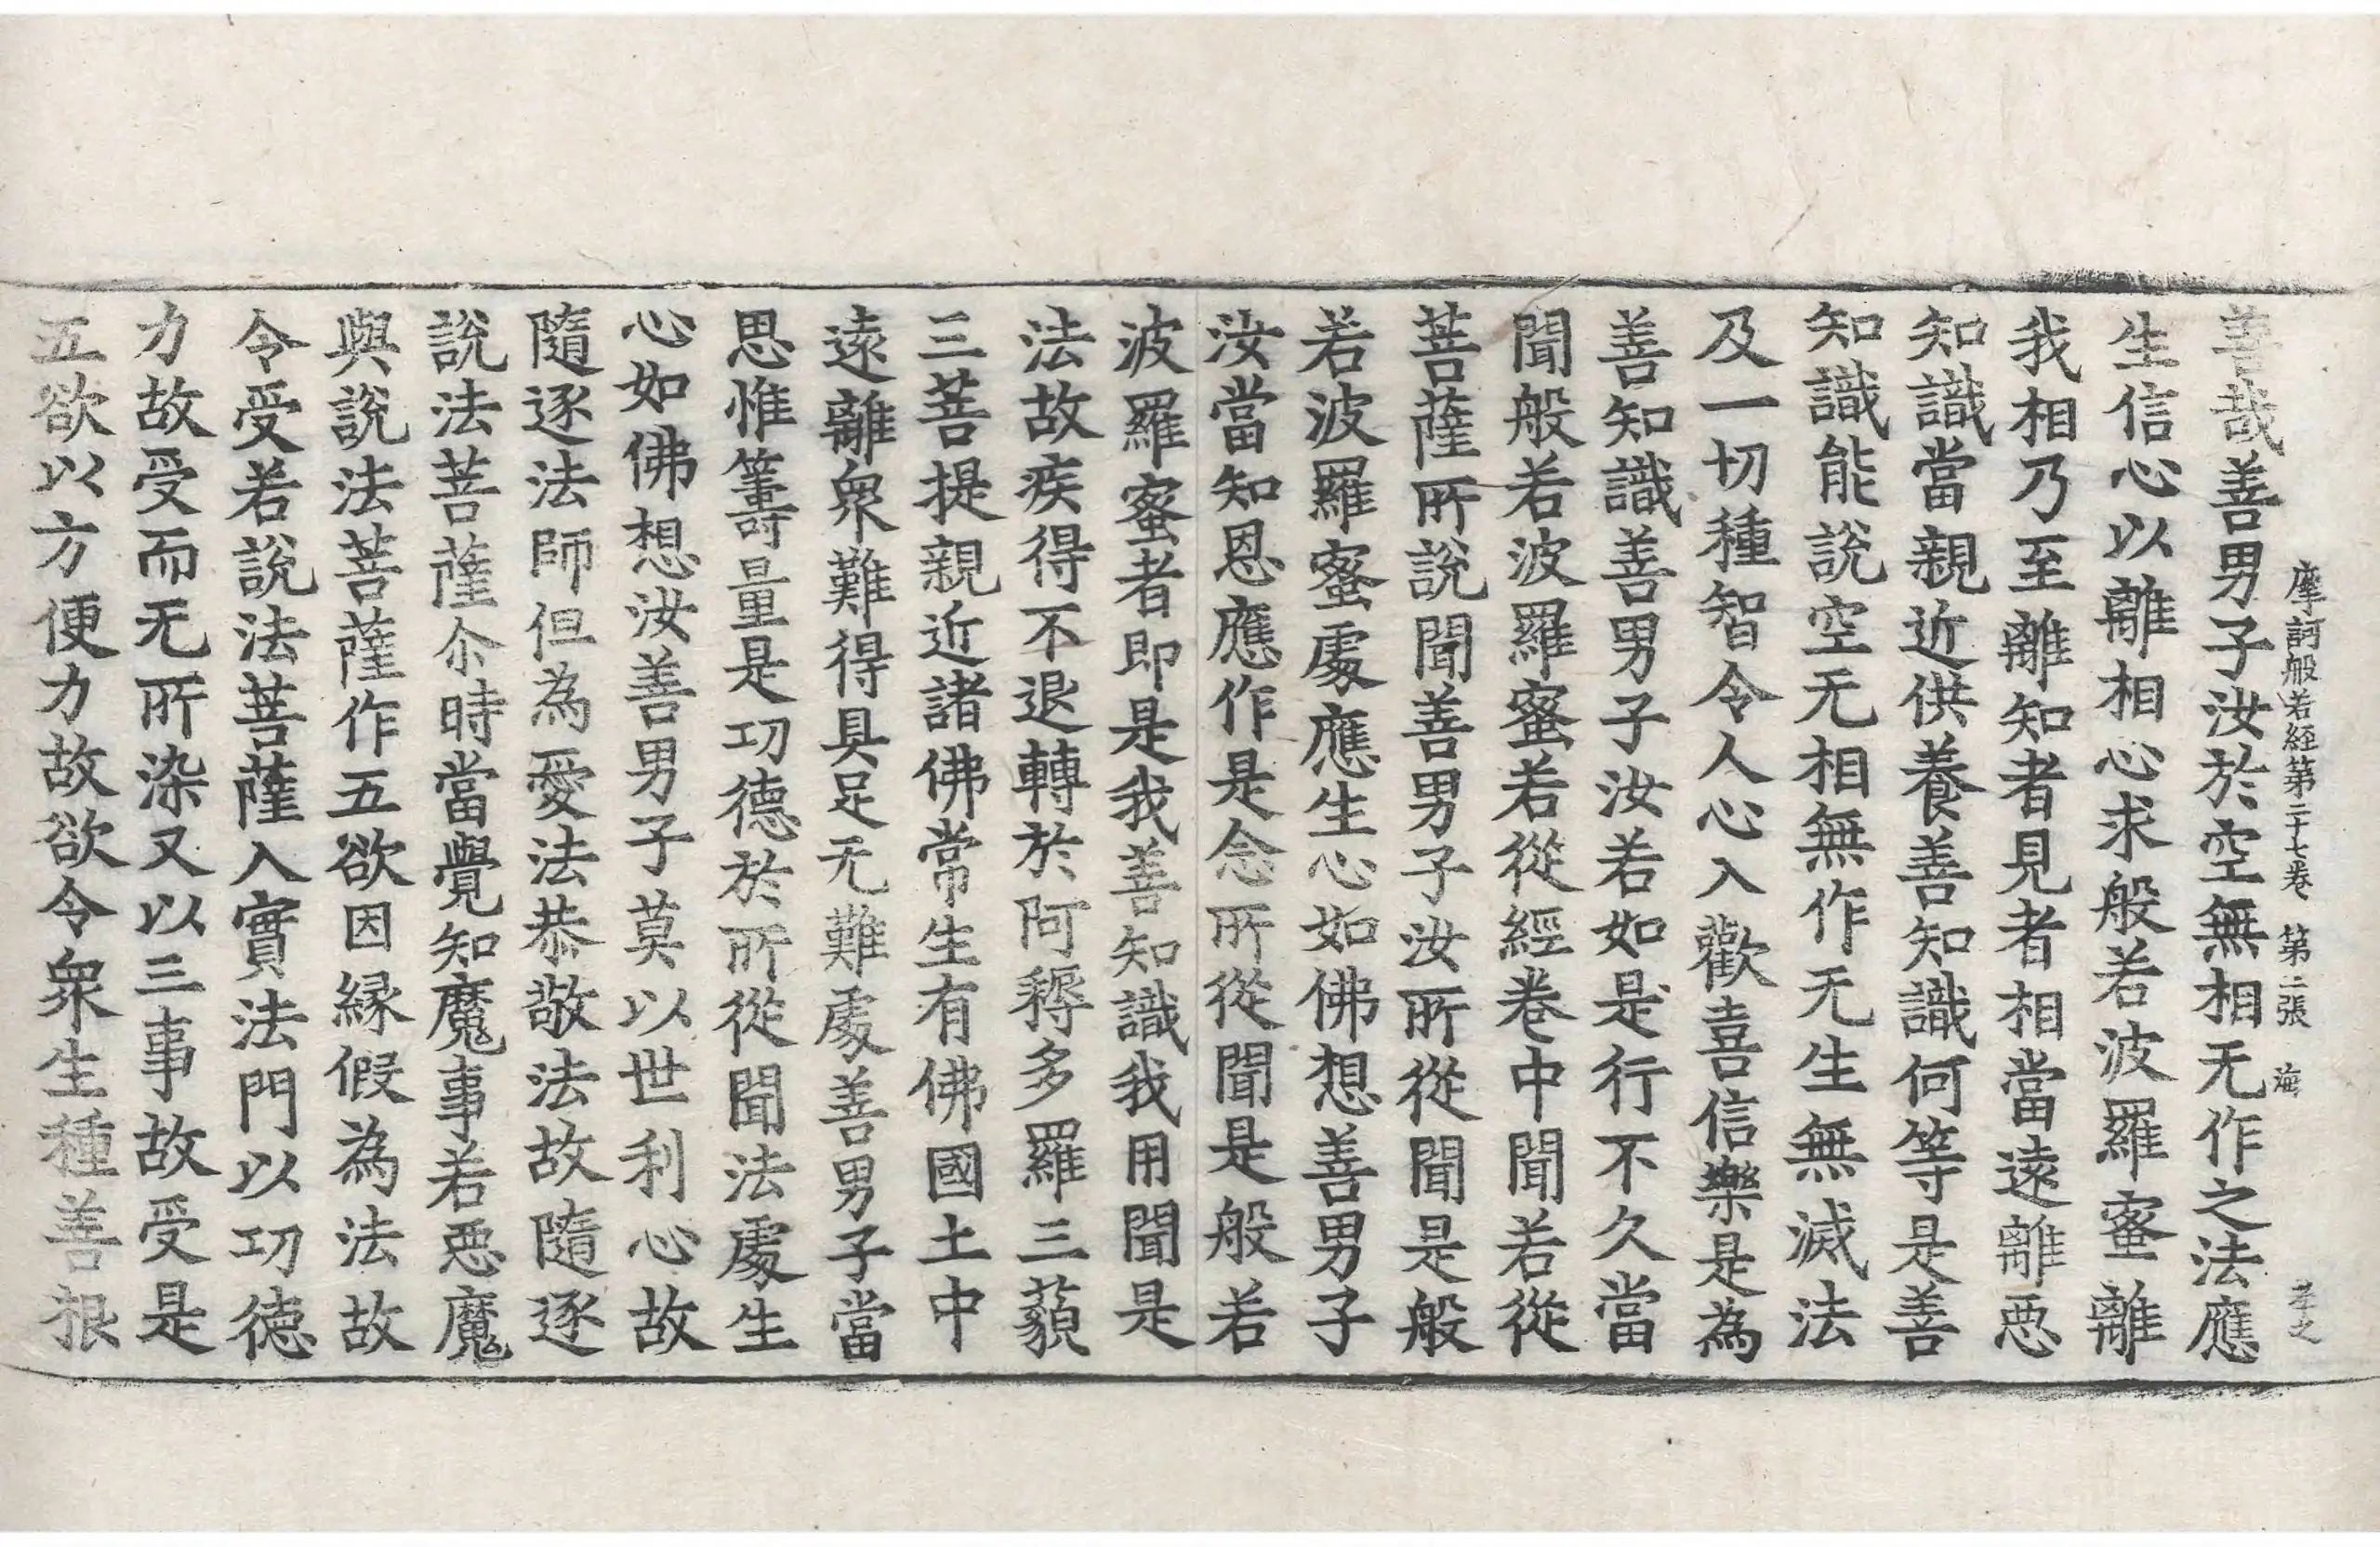 摩訶般若経第二十七卷 第二張 海
善哉善男子汝於空無相无作之法應
生信心以離相心求般若波羅蜜離
我相乃至離知者見者相當遠離悪
知識當親近供養善知識何等是善
知識能說空无相無作无生無滅法
及一切種智令人心入歡喜信樂是為
善知識善男子汝若如是行不久當
聞般若波羅蜜若從經卷中聞若從
菩薩所說聞善男子汝所從聞是般
若波羅蜜處應生心如佛想善男子
汝當知恩應作是念所從聞是般若
波羅蜜者即是我善知識我用聞是
法故疾得不退轉於阿耨多羅三藐
三菩提親近諸佛常生有佛國土中
遠離衆難得具足无難處善男子當
思惟籌量是功德於所從聞法處生
心如佛想汝善男子莫以世利心故
隨逐法師但為愛法恭敬法故隨逐
說法菩薩尒時當覺知魔事若悪魔
與說法菩薩作五欲因縁假為法故
令受若說法菩薩入實法門以功德
力故受而无所染又以三事故受是
五欲以方便力故欲令衆生種善根